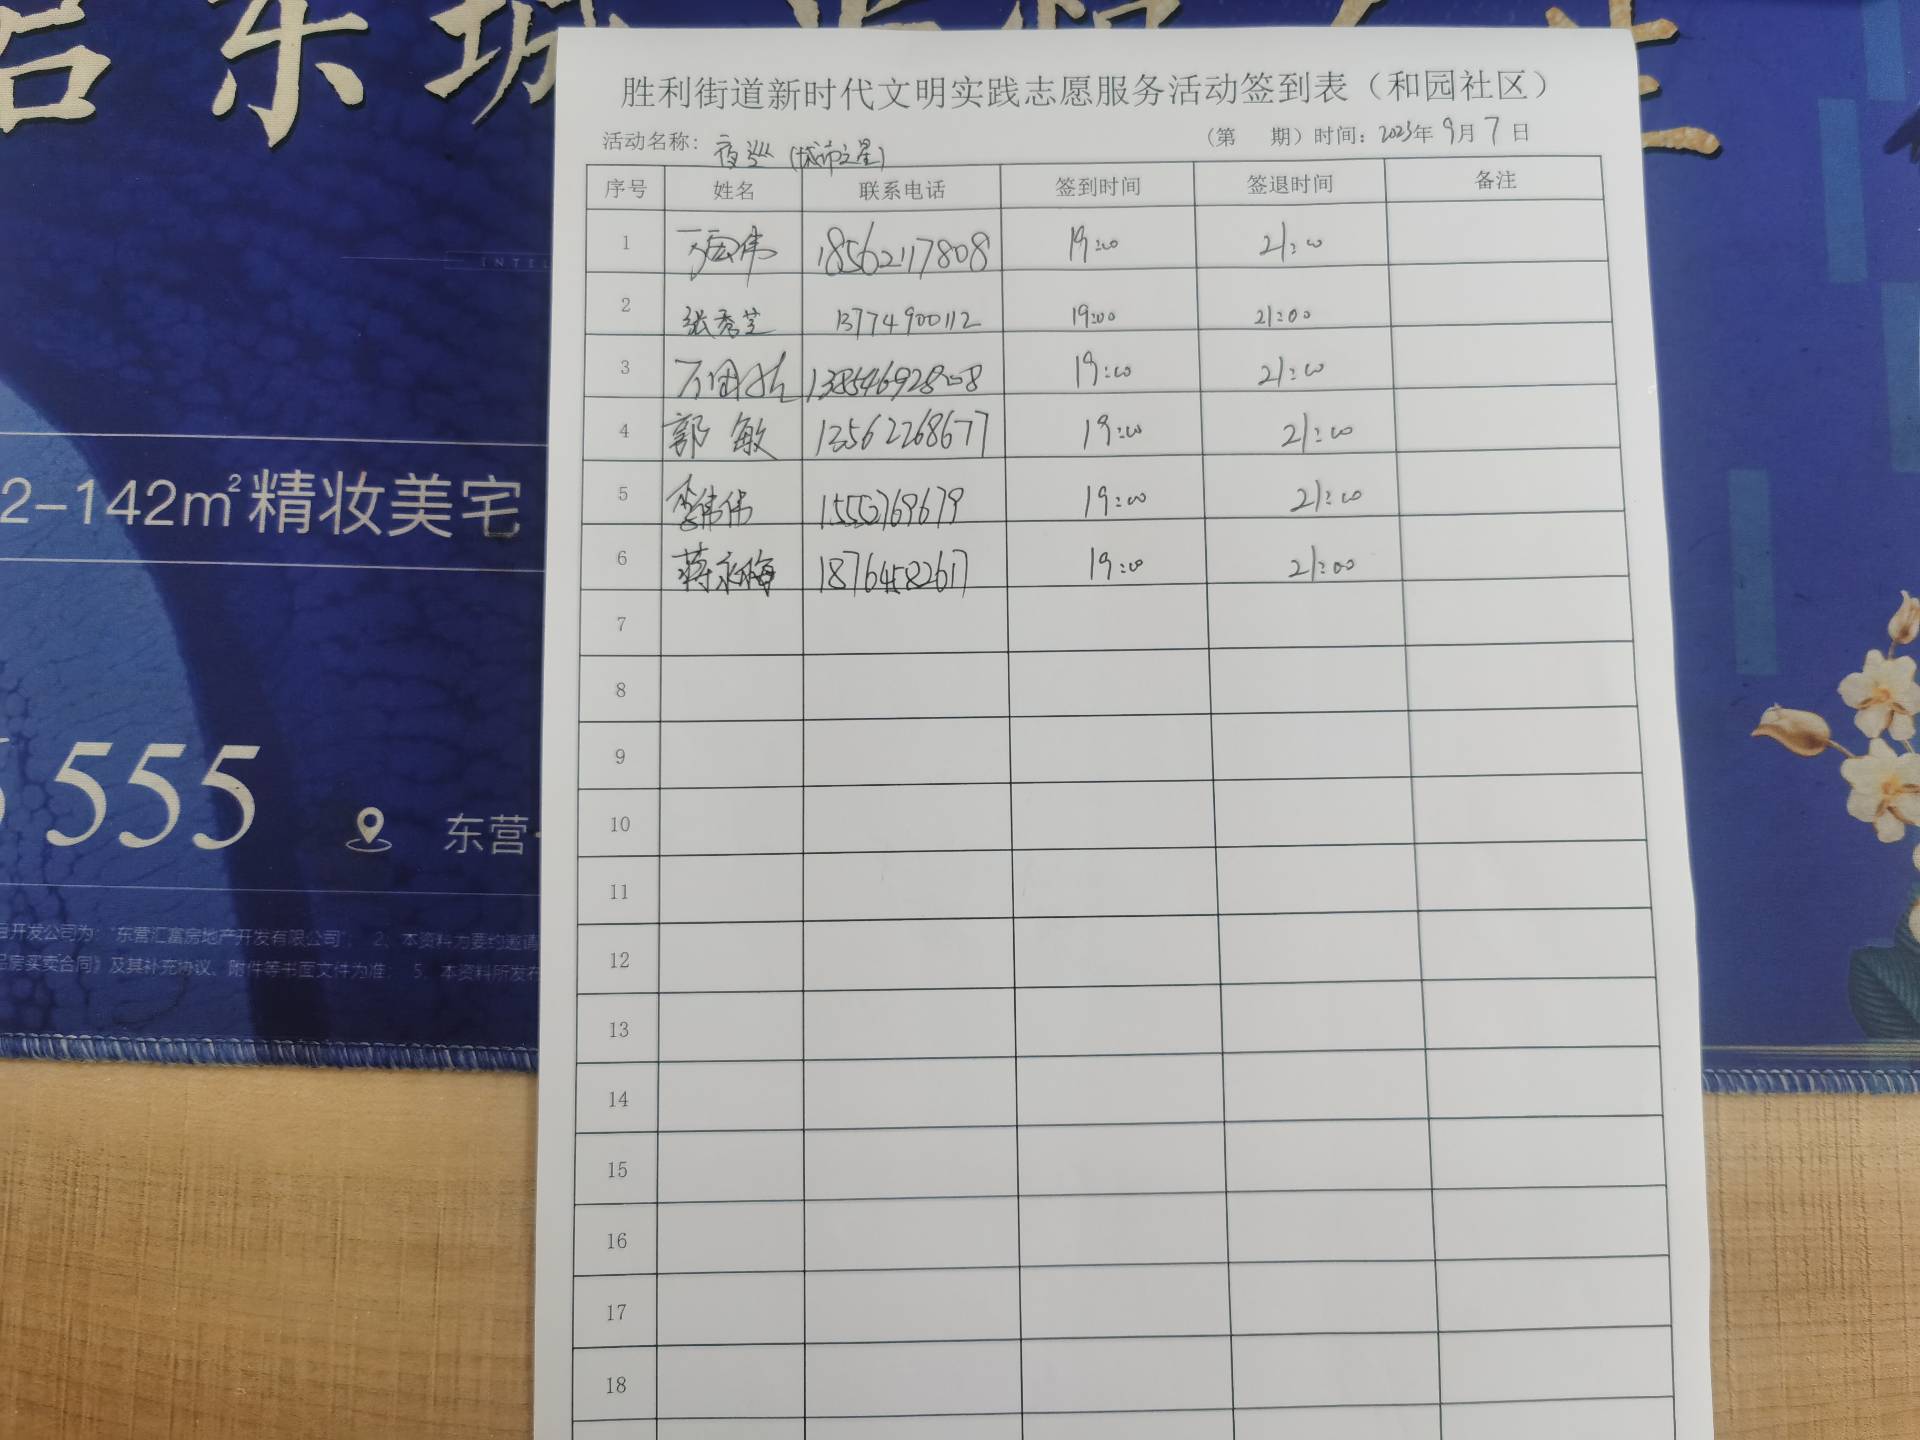 胜利街道新时代文明实践志愿服务活动签到表（和园社区）
活动名称：夜巡（城市之星）
（第 期）时间：2023年9月7日
序号 姓名 联系电话 签到时间 签退时间 备注
1 伟 18562117808 19:00 21:00
2 张秀芝 13774900112 19:00 21:00
3 19:00 21:00
4 郭敏 13562268677 19:00 21:00
5 李伟伟 15552769679 19:00 21:00
6 蒋永梅 18764582617 19:00 21:00
7
8
9
10
11
12
13
14
15
16
17
18
2-142m²精妆美宅
555
东营
开发公司为："东营汇富房地产开发有限公司"； 2、本资料为要约邀请
房买卖合同》及其补充协议、附件等书面文件为准； 5、本资料所发布